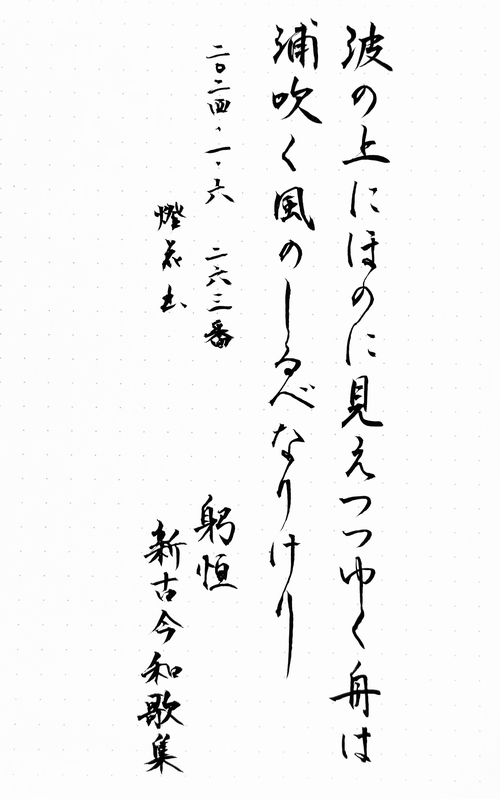 波の上にほのに見えつつゆく舟は
浦吹く風のしるべなりけり
躬恒
新古今和歌集
二〇二四・一・六 二六三番
燈花出